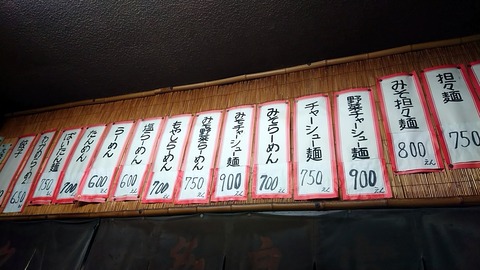 担々麺 750
みそ担々麺 800えん
野菜チャーシュー麺 900えん
チャーシュー麺 750えん
みそらーめん 700えん
みそチャーシュー麺 900えん
みそ野菜らーめん 750えん
もやしらーめん 700えん
塩らーめん 600えん
らーめん 600えん
たんめん 600えん
ぱいたん麺 700